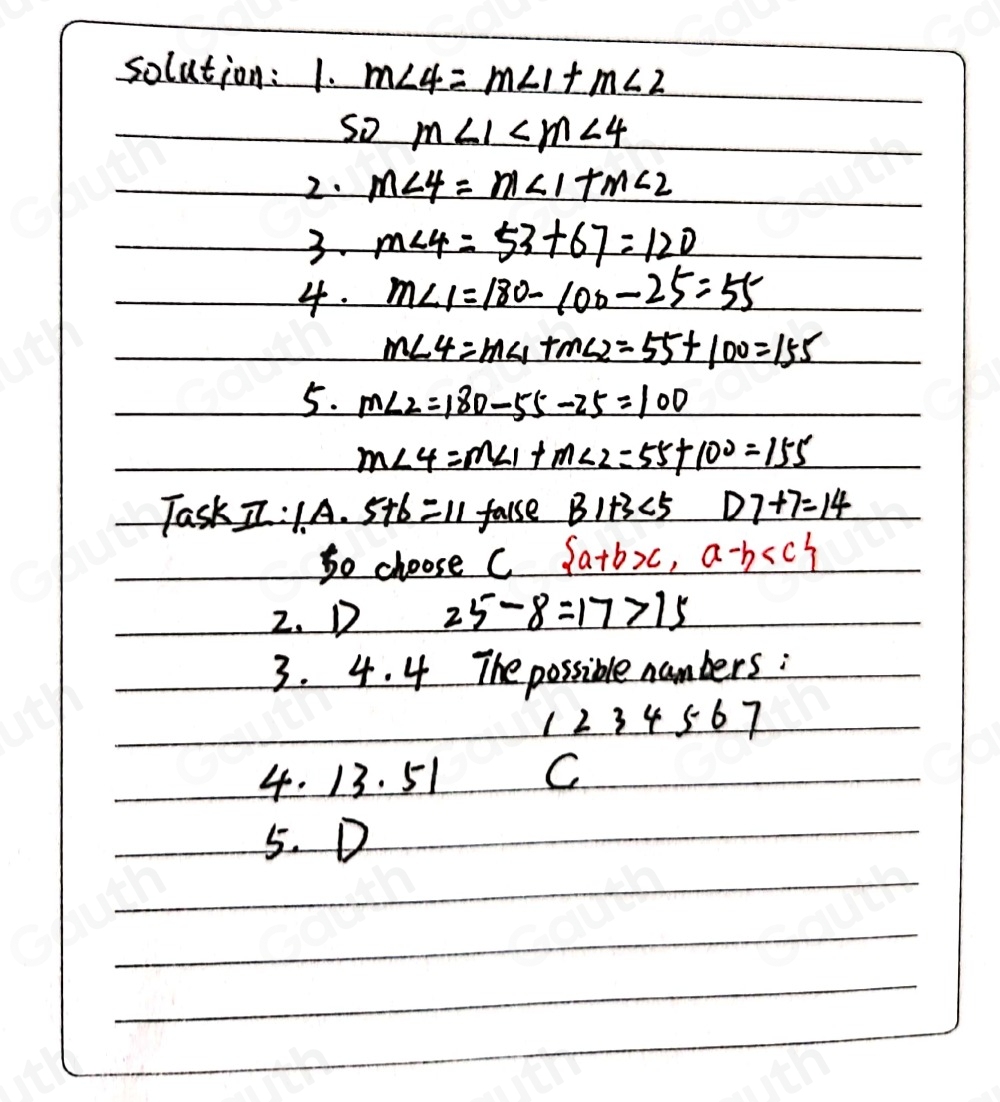 Solution: 1. m∠4 = m∠1 + m∠2
so m∠1 < m∠4
2. m∠4 = m∠1 + m∠2
3. m∠4 = 53+67 = 120
4. m∠1 = 180 - 100 - 25 = 55
m∠4 = m∠1 + m∠2 = 55 + 100 = 155
5. m∠2 = 180 - 55 - 25 = 100
m∠4 = m∠1 + m∠2 = 55 + 100 = 155
Task II: 1. A. 5+6 = 11 false B 1+3 < 5 D 7+7 = 14
so choose C {a+b>c, a-b<c}
2. D 25 - 8 = 17 > 15
3. 4.4 The possible numbers:
1 2 3 4 5 6 7
4. 13.51 C
5. D